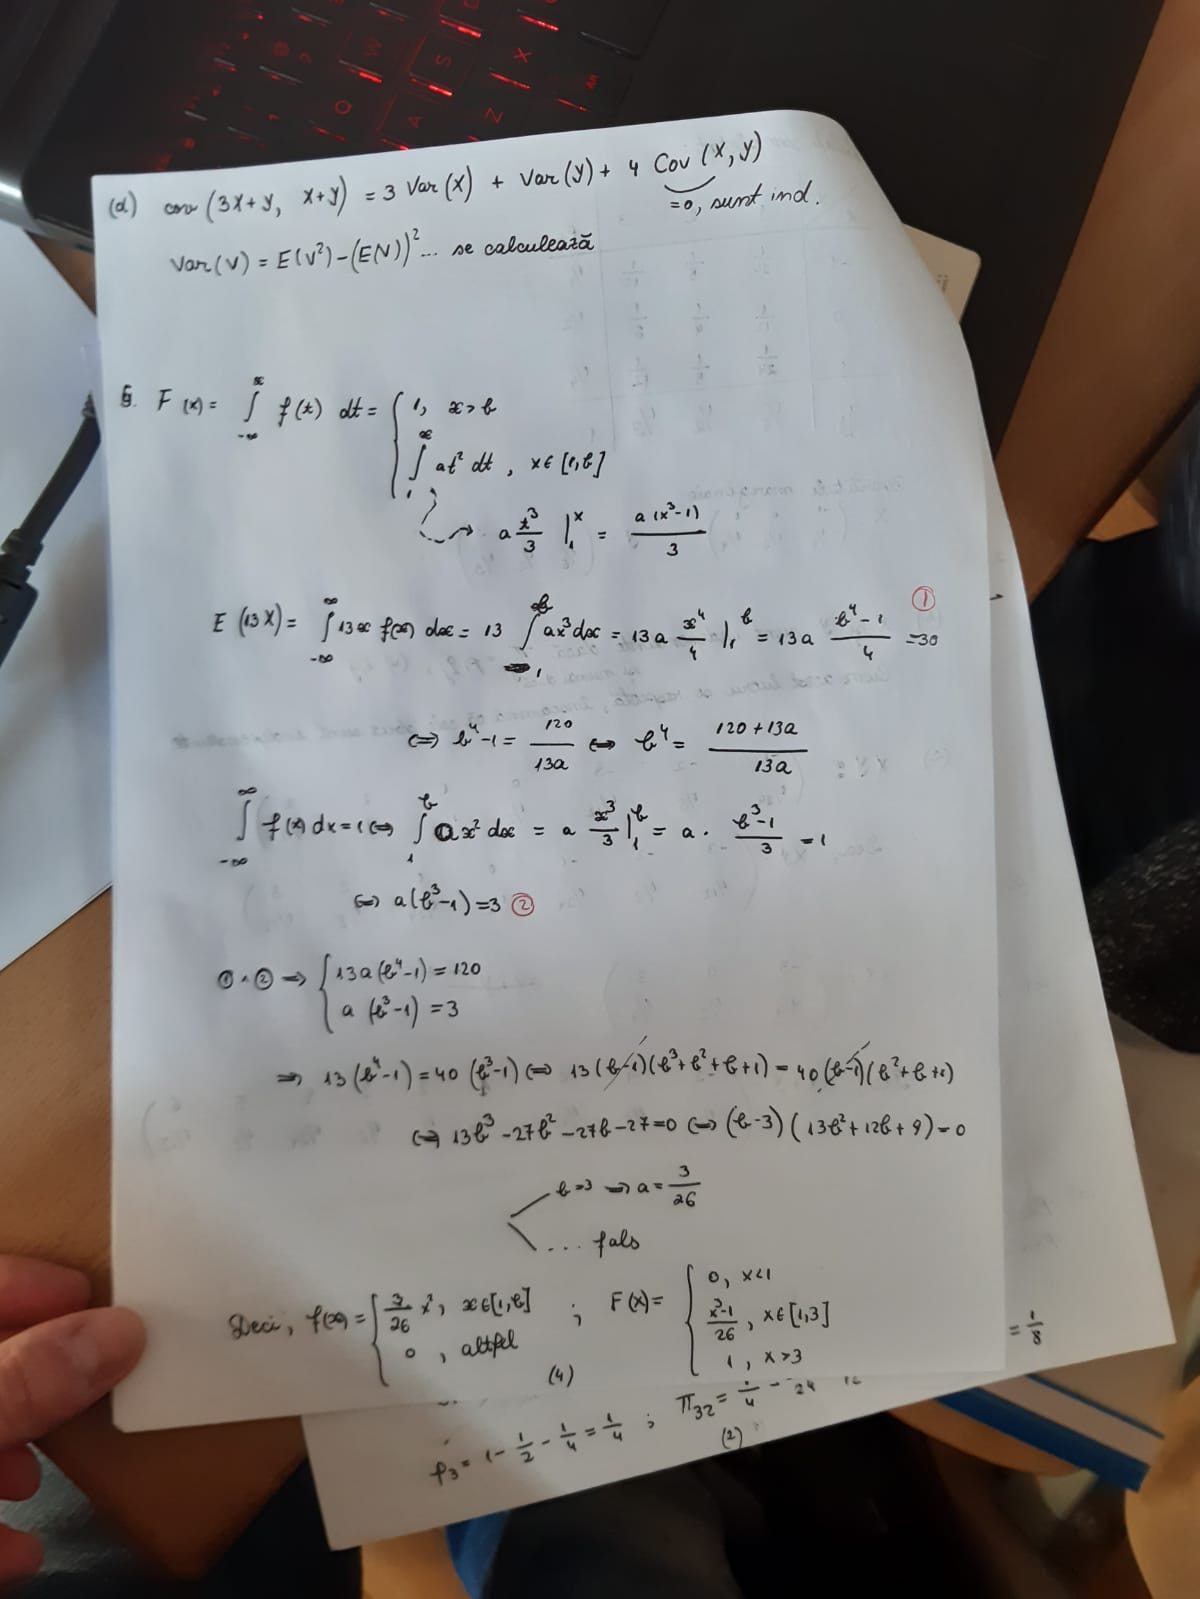 (d) cov (3X+Y, X+Y) = 3 Var(X) + Var(Y) + 4 Cov (X,Y)
=0, sunt ind.
Var(V) = E(V²) - (E(V))² ... se calculează
6. F(x) = ∫_{-∞}^{x} f(t) dt = { 1, x>b
∫_{1}^{x} at² dt, x∈[1,b]
→ a t³/3 |_1^x = a(x³-1)/3
E(13X) = ∫_{-∞}^{∞} 13x f(x) dx = 13 ∫_{1}^{b} ax³dx = 13a x⁴/4 |_1^b = 13a (b⁴-1)/4 = 30 ①
⇔ b⁴-1 = 120/13a ⇔ b⁴ = (120+13a)/13a
∫_{-∞}^{∞} f(x) dx = 1 ⇔ ∫_{1}^{b} ax² dx = a x³/3 |_1^b = a · (b³-1)/3 = 1
⇔ a(b³-1) = 3 ②
① ∧ ② ⇒ { 13a(b⁴-1) = 120
a (b³-1) = 3
⇒ 13(b⁴-1) = 40(b³-1) ⇔ 13(b-1)(b³+b²+b+1) = 40(b-1)(b²+b+1)
⇔ 13b³-27b²-27b-27=0 ⇔ (b-3)(13b²+12b+9)=0
b=3 ⇒ a = 3/26
... fals
Deci, f(x) = { 3/26 x², x∈[1,b]
0, altfel
; F(x) = { 0, x<1
(x³-1)/26, x∈[1,3]
1, x>3
(4)
= 1/8
p₃ = 1 - 1/2 - 1/4 = 1/4 ; π₃₂ = 1/4 -
(2)